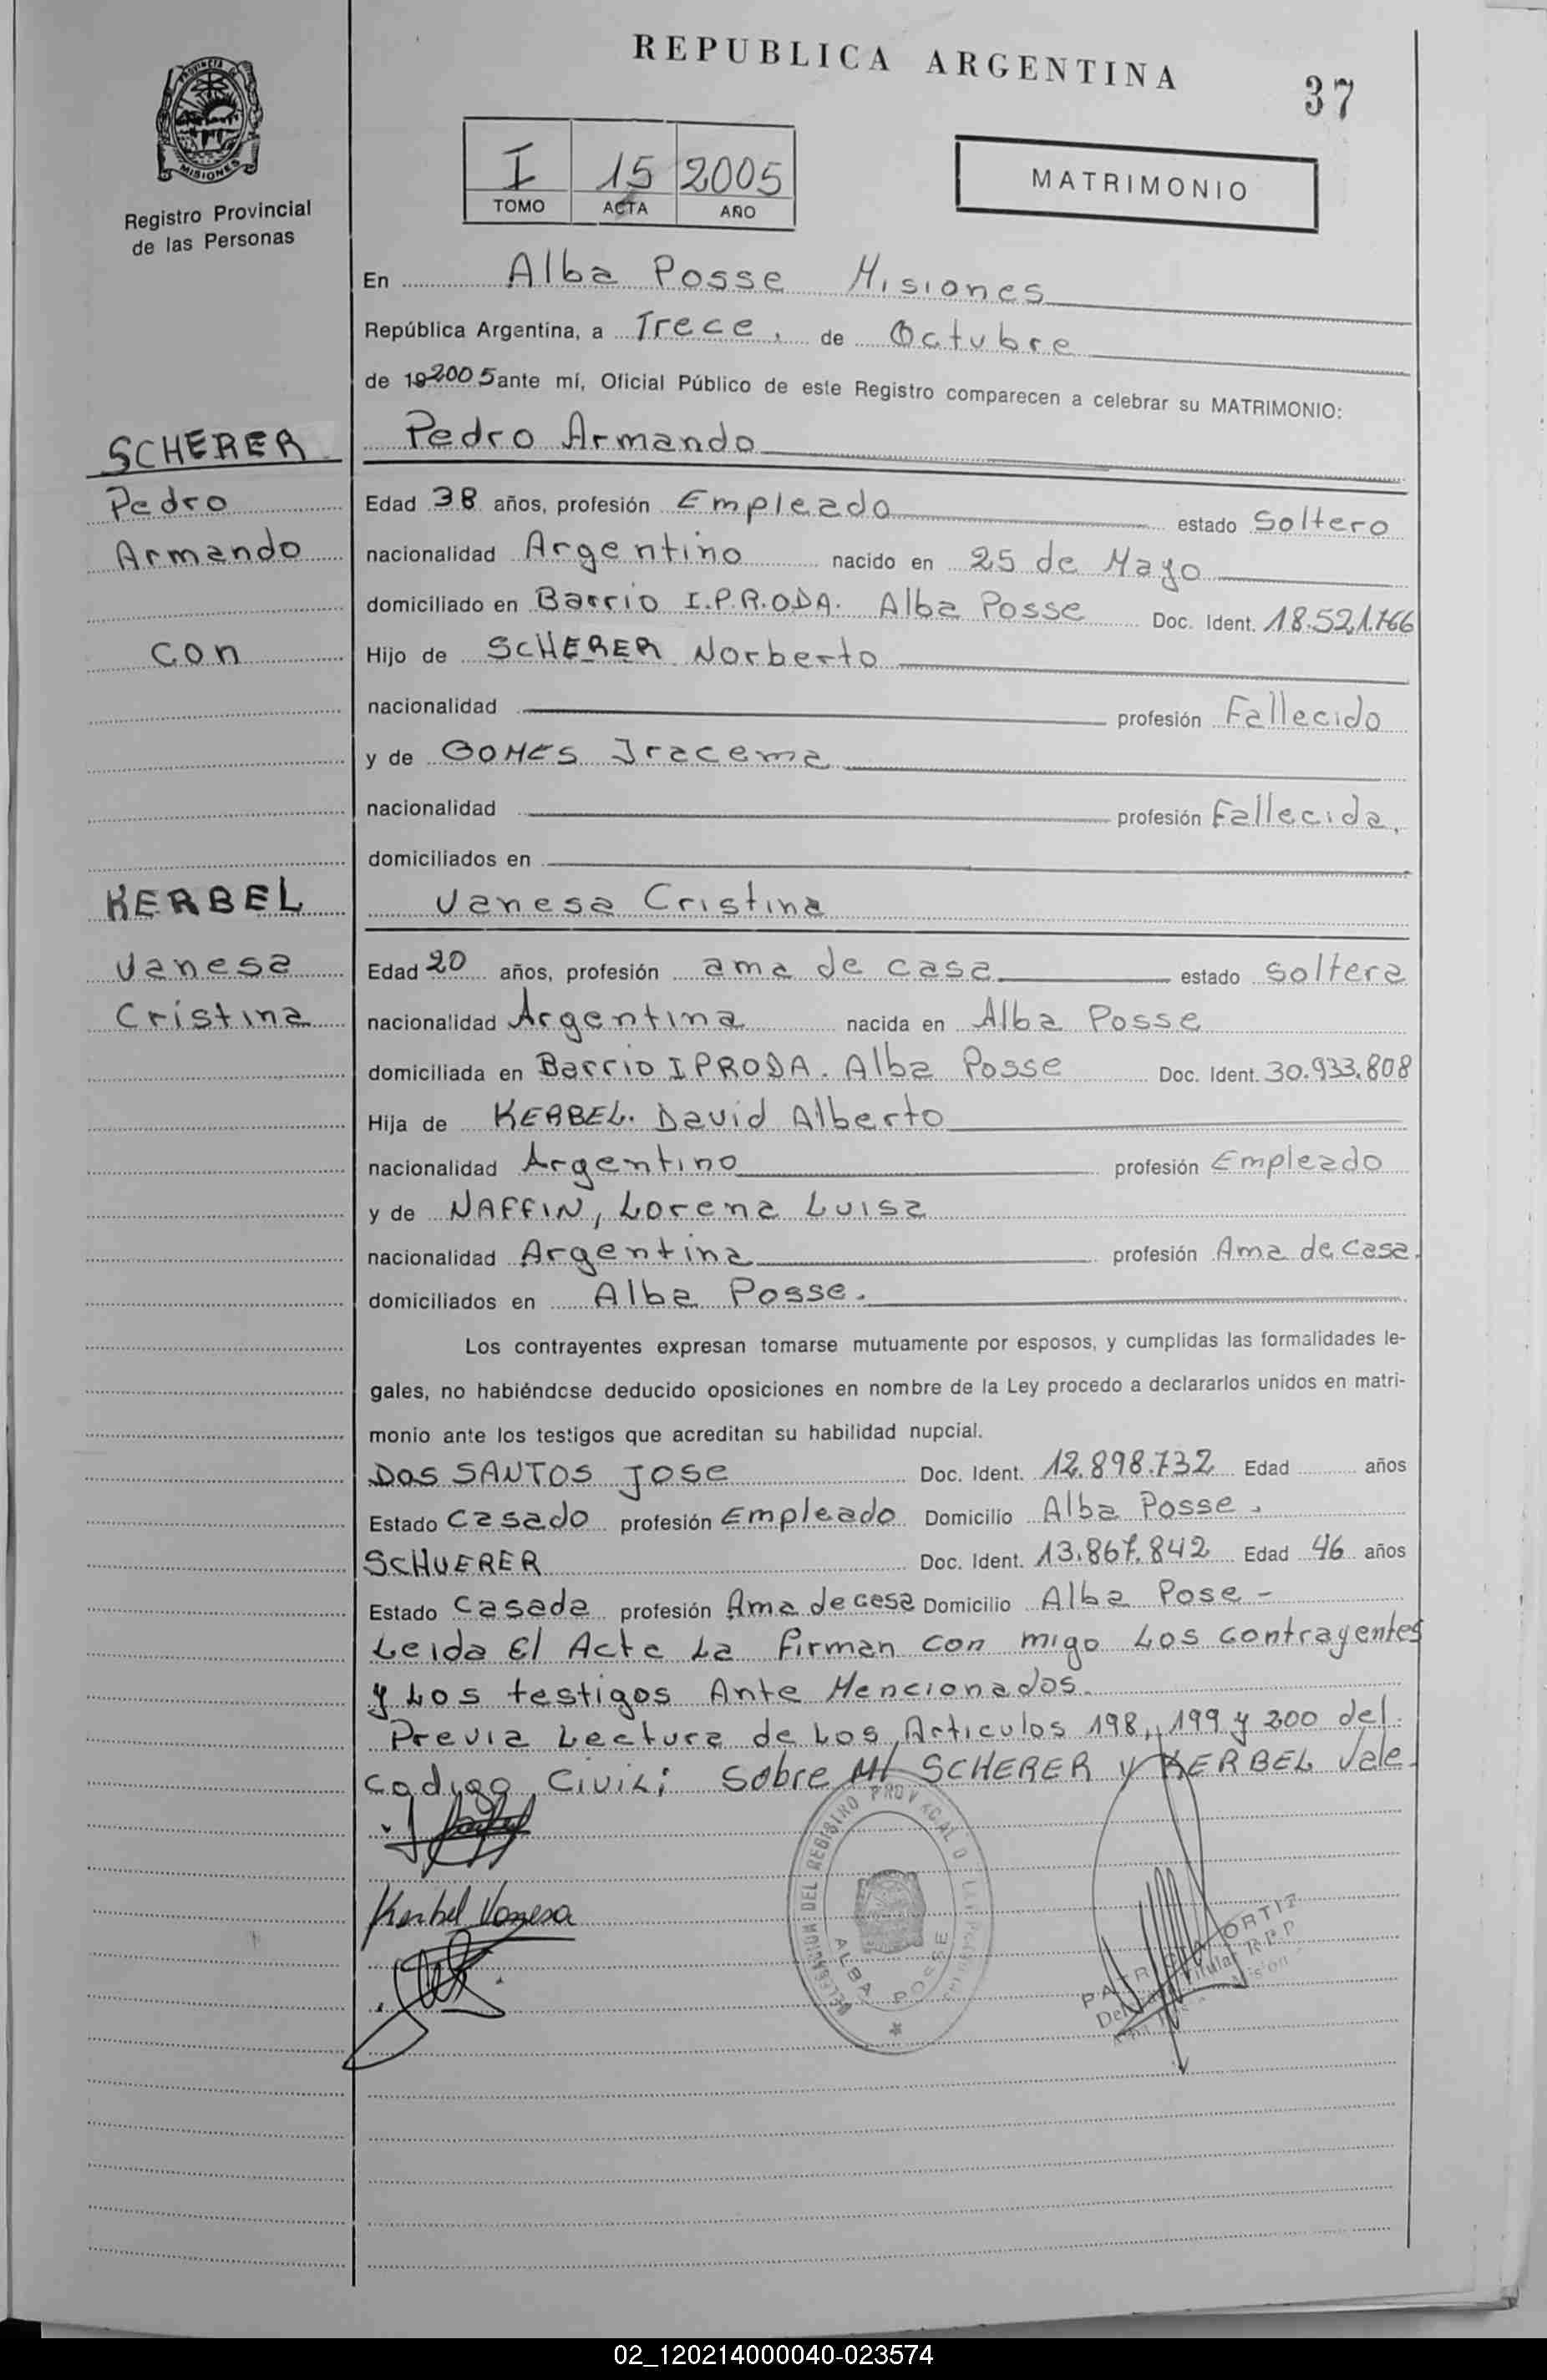 REPUBLICA ARGENTINA
37
PROVINCIA DE
MISIONES
Registro Provincial
de las Personas
I 15 2005
TOMO ACTA AÑO
MATRIMONIO
En Alba Posse Misiones
República Argentina, a Trece, de Octubre
de 19 2005 ante mí, Oficial Público de este Registro comparecen a celebrar su MATRIMONIO:
SCHERER Pedro Armando
Pedro Edad 38 años, profesión Empleado estado Soltero
Armando nacionalidad Argentino nacido en 25 de Mayo
domiciliado en Barrio I.P.R.ODA. Alba Posse Doc. Ident. 18.521.766
con Hijo de SCHERER Norberto
nacionalidad profesión Fallecido
y de GOMES Iracema
nacionalidad profesión Fallecida.
domiciliados en
KERBEL Vanesa Cristina
Vanesa Edad 20 años, profesión ama de casa estado Soltera
Cristina nacionalidad Argentina nacida en Alba Posse
domiciliada en Barrio IPRODA. Alba Posse Doc. Ident. 30.933.808
Hija de KERBEL. David Alberto
nacionalidad Argentino profesión Empleado
y de NAFFIN, Lorena Luisa
nacionalidad Argentina profesión Ama de Casa.
domiciliados en Alba Posse.
Los contrayentes expresan tomarse mutuamente por esposos, y cumplidas las formalidades le-
gales, no habiéndose deducido oposiciones en nombre de la Ley procedo a declararlos unidos en matri-
monio ante los testigos que acreditan su habilidad nupcial.
DOS SANTOS JOSE Doc. Ident. 12.898.732 Edad años
Estado Casado profesión Empleado Domicilio Alba Posse.
SCHUERER Doc. Ident. 13.867.842 Edad 46 años
Estado Casada profesión Ama de casa Domicilio Alba Pose -
Leida El Acta La firman con migo Los contrayentes
y Los testigos Ante Mencionados.
Previa Lectura de Los Articulos 198, 199 y 200 del
Codigo Civil; Sobre SCHERER y KERBEL Vale
Kerbel Vanesa
DELEGACION DEL REGISTRO PROVINCIAL DE LAS PERSONAS
ALBA POSSE
PATRICIA ORTIZ
Titular R.P.P
02_120214000040-023574